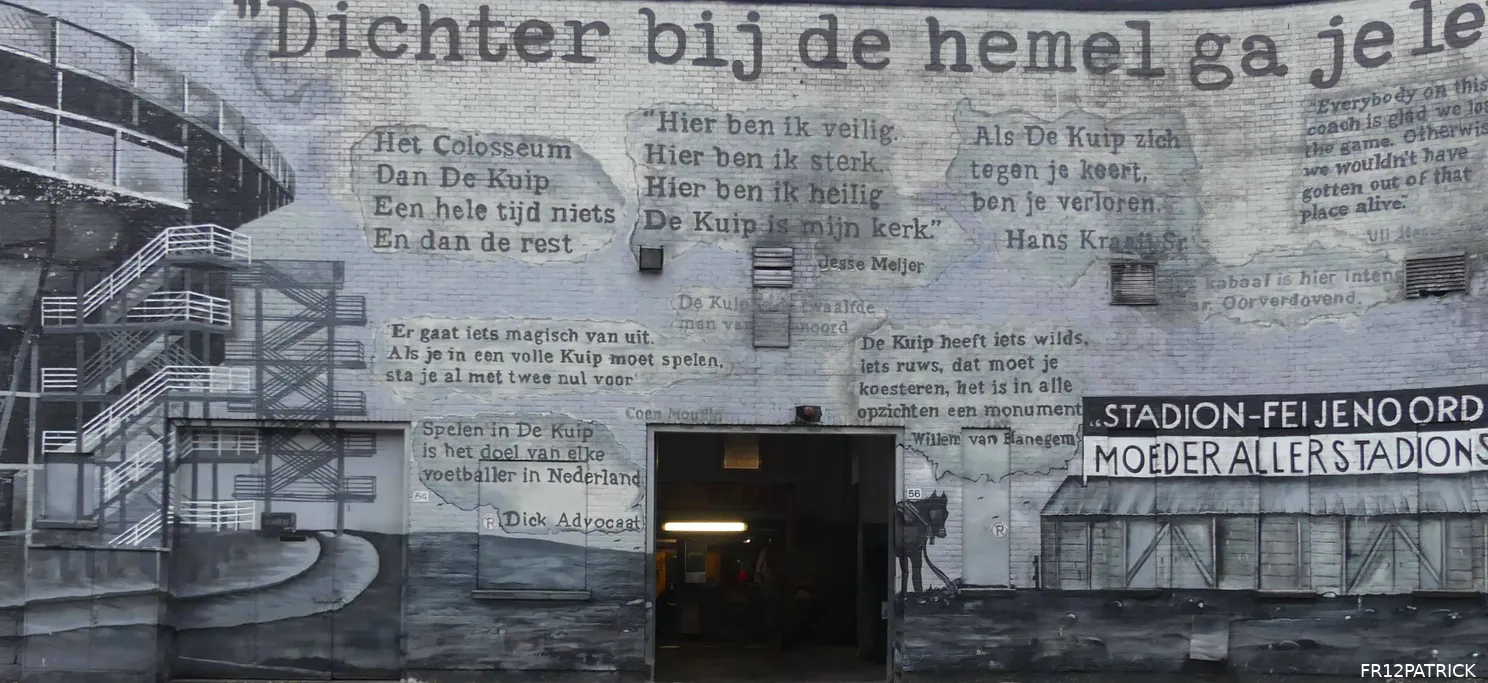 "Dichter bij de hemel ga je le
Het Colosseum
Dan De Kuip
Een hele tijd niets
En dan de rest
"Hier ben ik veilig.
Hier ben ik sterk.
Hier ben ik heilig
De Kuip is mijn kerk."
Jesse Meijer
Als De Kuip zich
tegen je keert,
ben je verloren.
Hans Kraaij Sr
"Everybody on this
coach is glad we lo
the game. Otherwis
we wouldn't have
gotten out of that
place alive."
Uli
kabaal is hier intens
Oorverdovend.
De Kuip twaalfde
man van
'Er gaat iets magisch van uit.
Als je in een volle Kuip moet spelen,
sta je al met twee nul voor'
Coen Moulijn
De Kuip heeft iets wilds,
iets ruws, dat moet je
koesteren, het is in alle
opzichten een monument
Willem van Hanegem
Spelen in De Kuip
is het doel van elke
voetballer in Nederland
Dick Advocaat
54
R
56
R
"STADION-FEIJENOORD
MOEDER ALLER STADIONS
FR12PATRICK